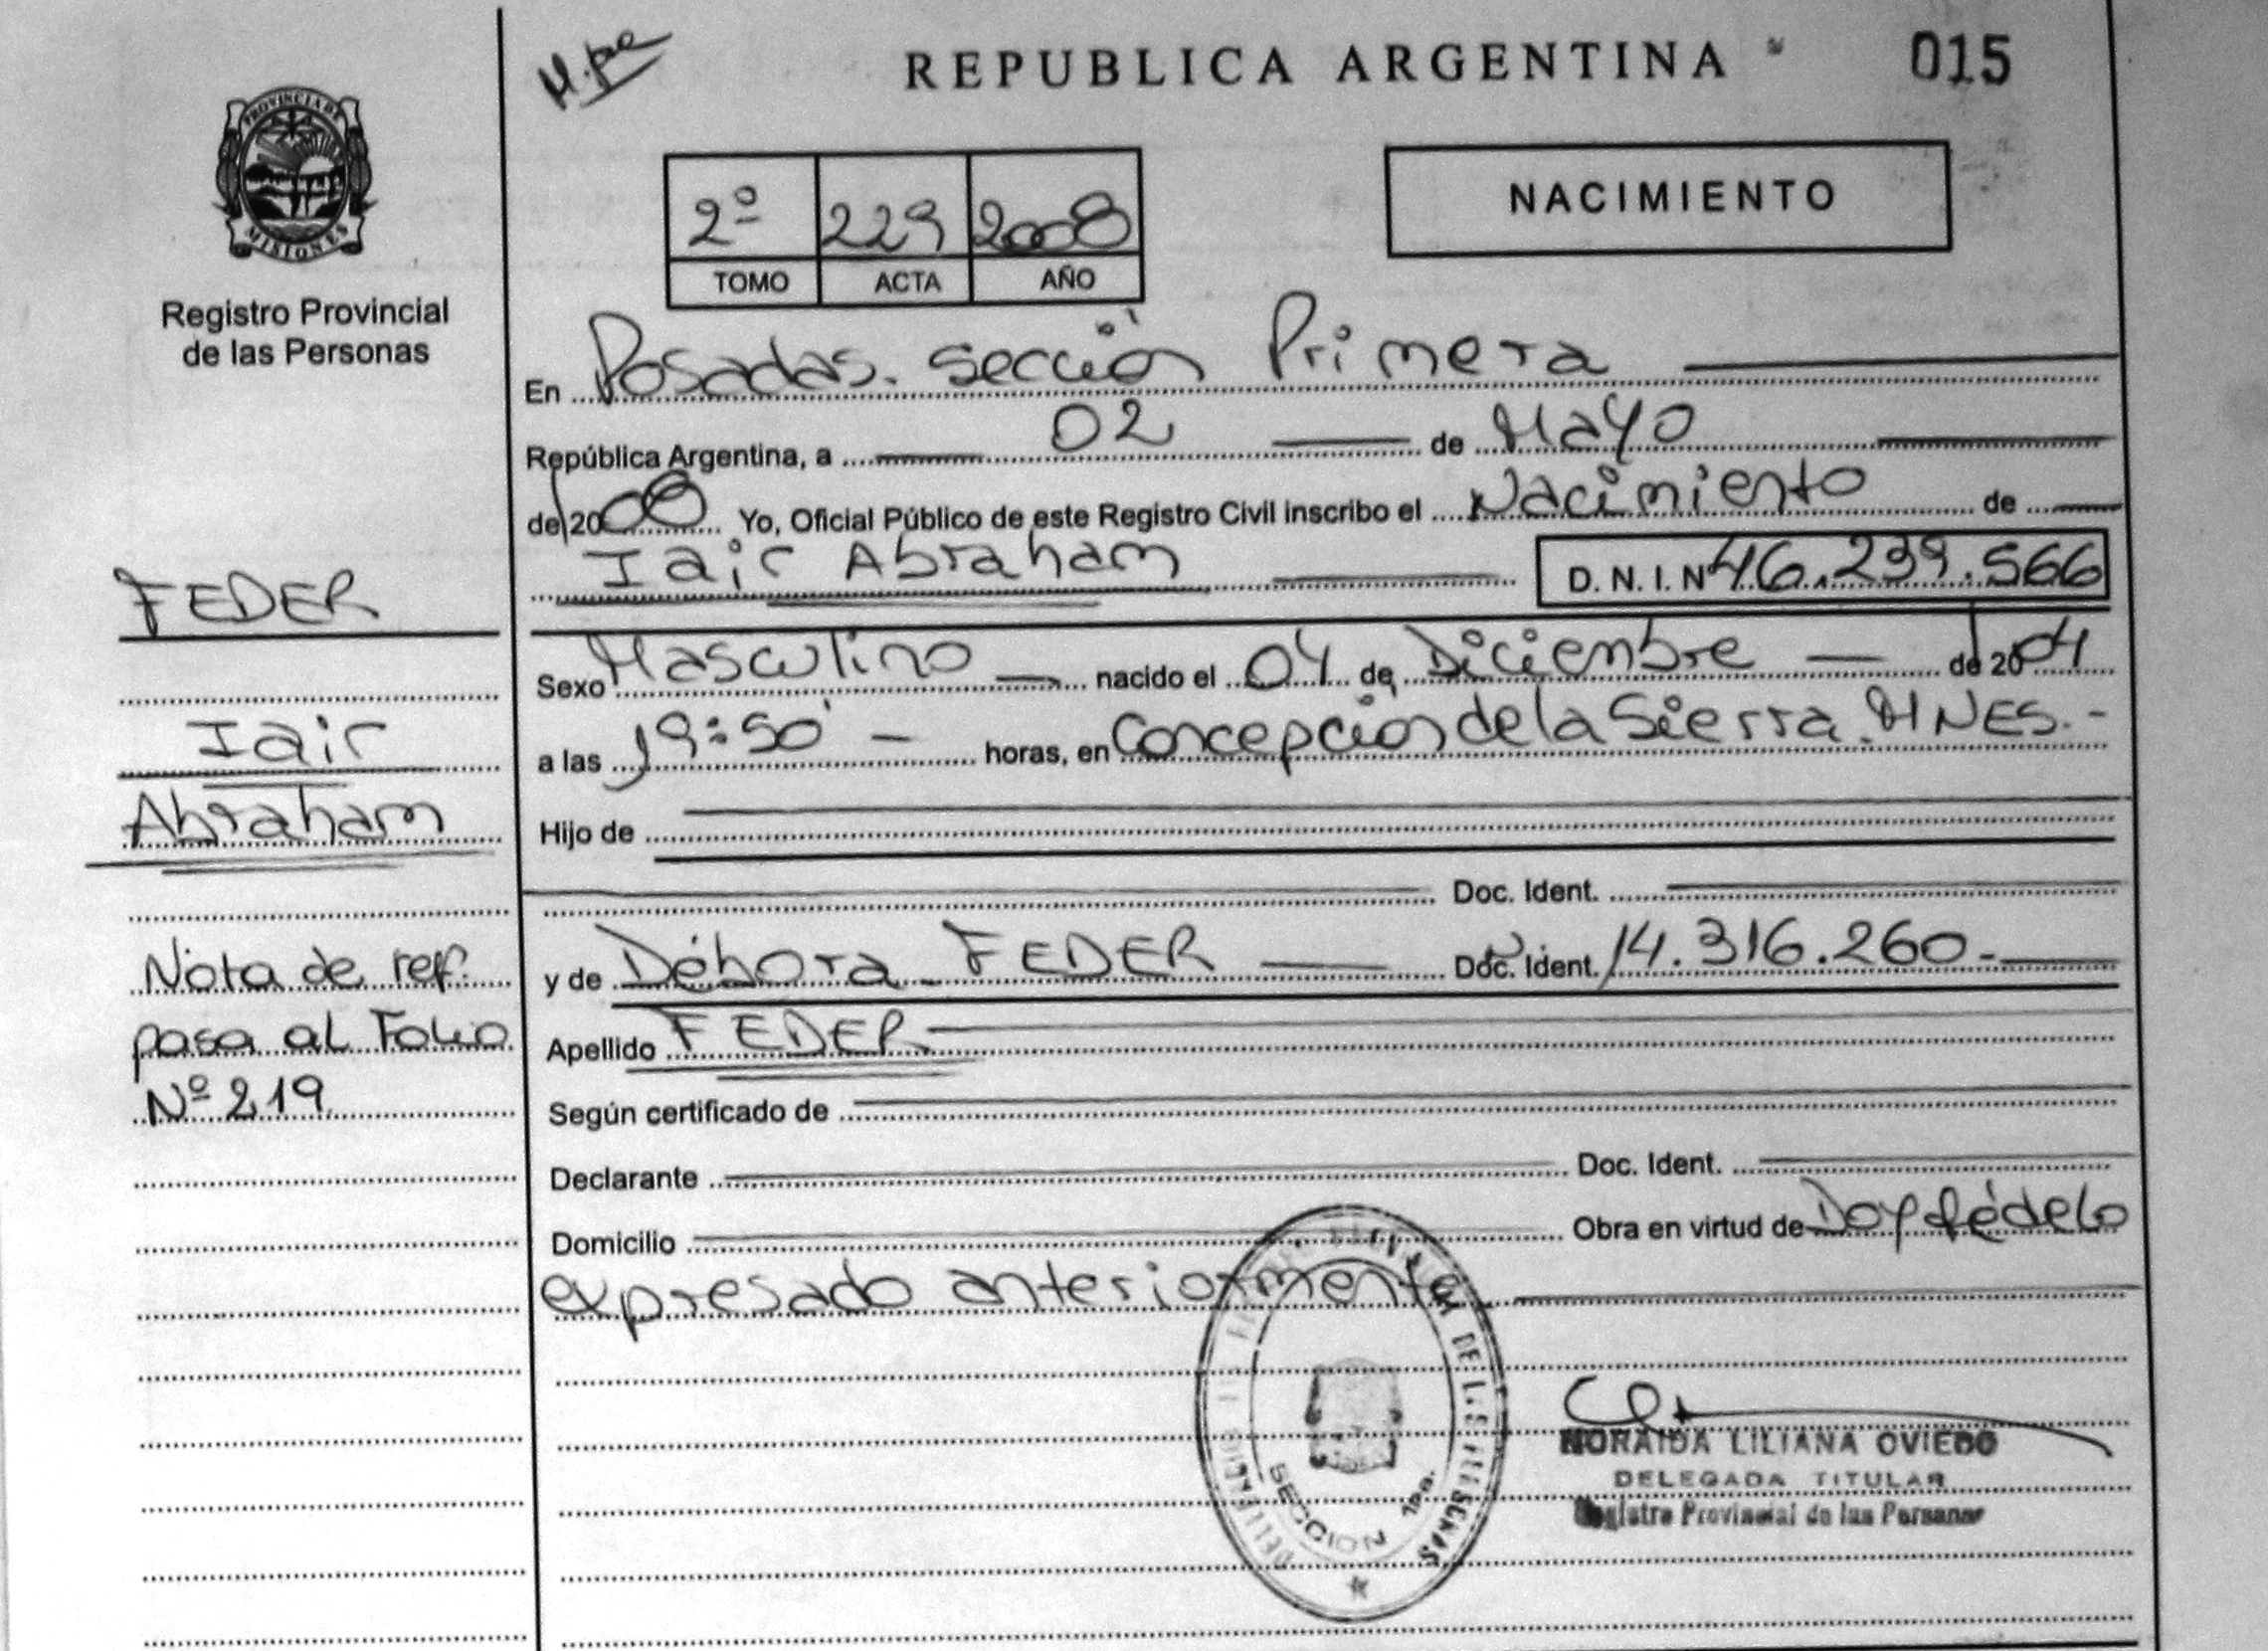 REPUBLICA ARGENTINA
015
PROVINCIA DE
MISIONES
Registro Provincial
de las Personas
2º 229 2008
TOMO ACTA AÑO
NACIMIENTO
En Posadas. Sección Primera
República Argentina, a 02 de Mayo
de 2008 Yo, Oficial Público de este Registro Civil inscribo el Nacimiento de
Iair Abraham D. N. I. Nº 46.239.566
FEDER
Iair
Abraham
Nota de ref.
pasa al Folio
Nº 219
Sexo Masculino nacido el 04 de Diciembre de 2004
a las 19:50 horas, en Concepción de la Sierra. MNES.-
Hijo de
Doc. Ident.
y de Débora FEDER Doc. Ident. 14.316.260.-
Apellido FEDER
Según certificado de
Declarante Doc. Ident.
Domicilio Obra en virtud de Doy fé de lo
expresado anteriormente
SECCION 1ra.
NORAIDA LILIANA OVIEDO
DELEGADA TITULAR
Registro Provincial de las Personas